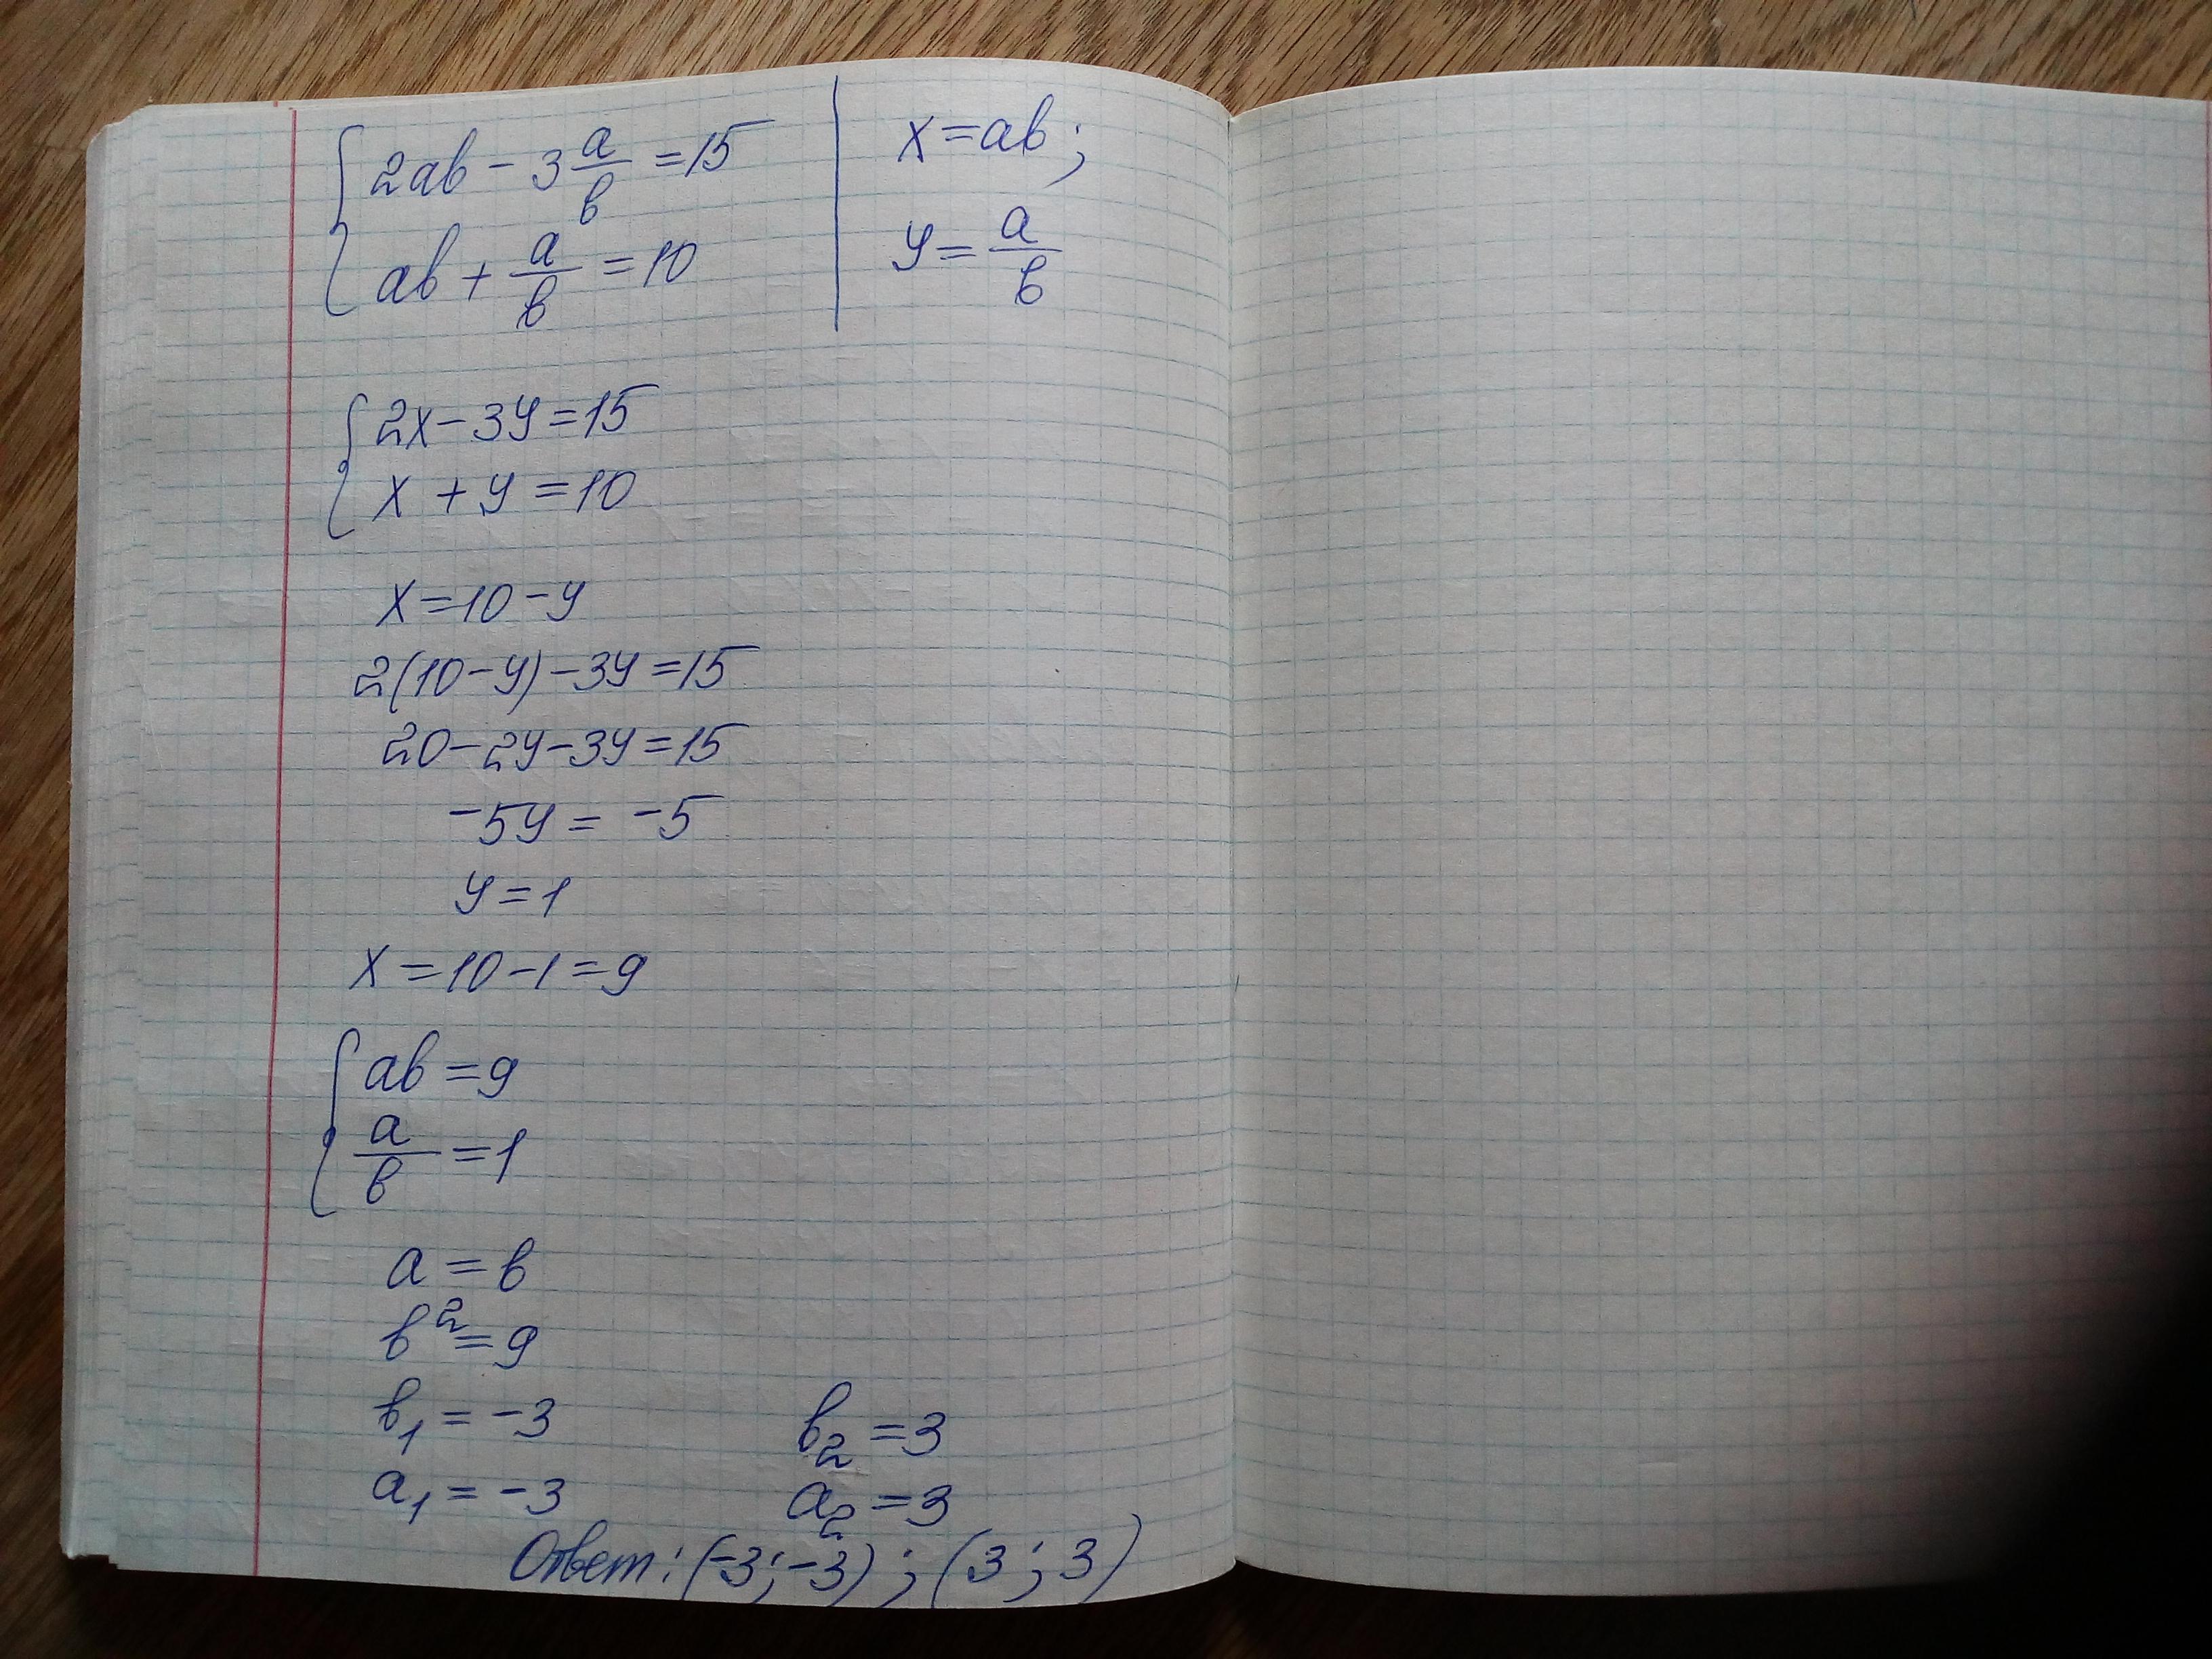 2ab - 3 a/b = 15
ab + a/b = 10
x = ab;
y = a/b
2x - 3y = 15
x + y = 10
x = 10 - y
2(10 - y) - 3y = 15
20 - 2y - 3y = 15
-5y = -5
y = 1
x = 10 - 1 = 9
ab = 9
a/b = 1
a = b
b² = 9
b₁ = -3
b₂ = 3
a₁ = -3
a₂ = 3
Ответ: (-3; -3); (3; 3)